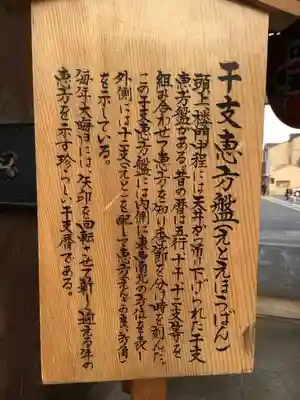 干支恵方盤(えとえほうばん)
頭上、楼門中程には天井から吊り下げられた干支
恵方盤がある。昔の暦は五行、十干、十二支等を
組み合わせて恵方を知り、季節を分け時を刻んだ。
この干支恵方盤には内側に東西南北の方位を表し
外側には十二支(えと)を配して恵方(えとの良い方角)
を示している。
毎年大晦日には矢印を回転させて新しく迎える年の
恵方を示す珍らしい干支暦である。